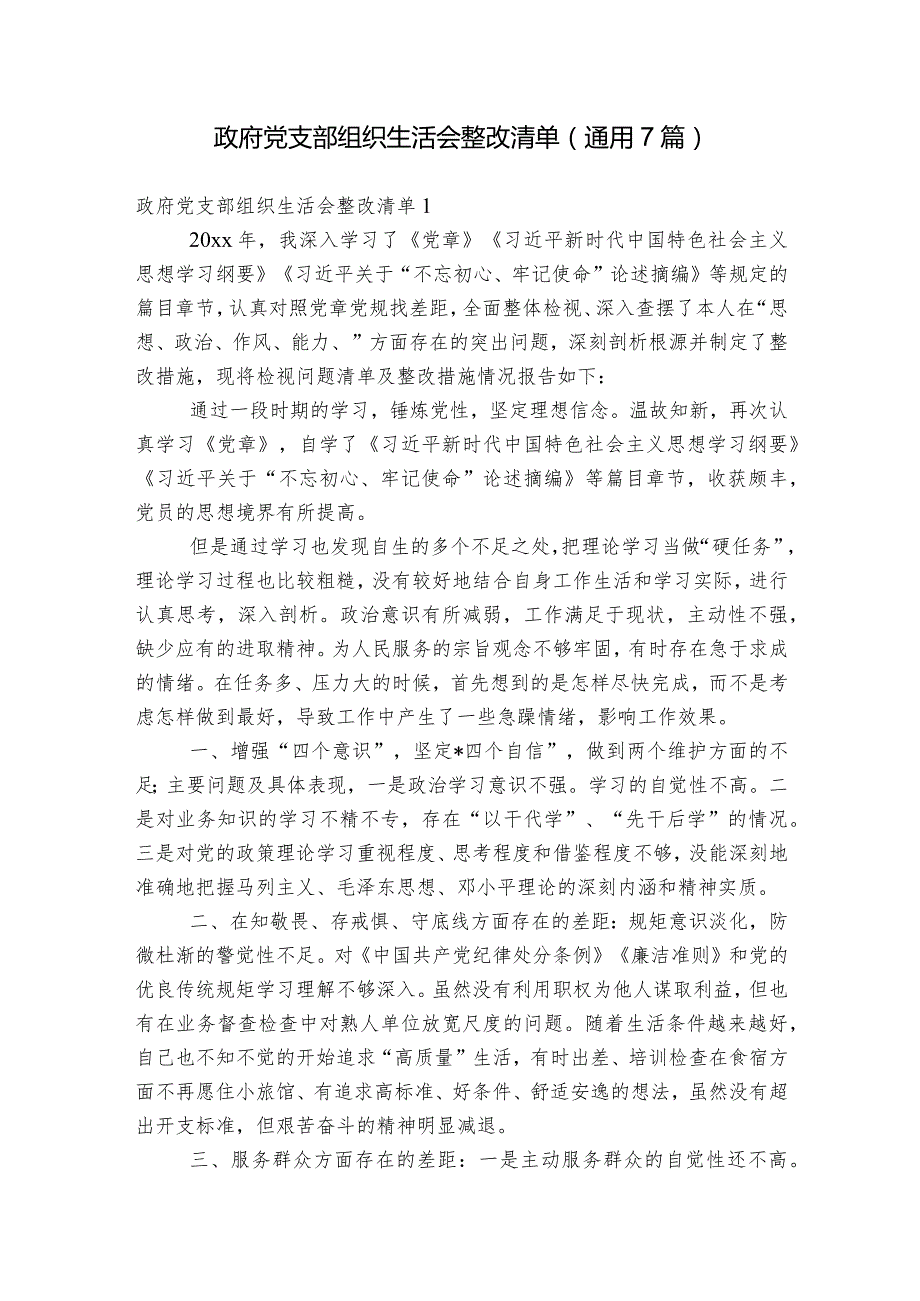 政府党支部组织生活会整改清单（通用7篇）
政府党支部组织生活会整改清单1
20xx 年，我深入学习了《党章》《习近平新时代中国特色社会主义
思想学习纲要》《习近平关于“不忘初心、牢记使命”论述摘编》等规定的
篇目章节，认真对照党章党规找差距，全面整体检视、深入查摆了本人在“思
想、政治、作风、能力、”方面存在的突出问题，深刻剖析根源并制定了整
改措施，现将检视问题清单及整改措施情况报告如下：
通过一段时期的学习，锤炼党性，坚定理想信念。温故知新，再次认
真学习《党章》，自学了《习近平新时代中国特色社会主义思想学习纲要》
《习近平关于“不忘初心、牢记使命”论述摘编》等篇目章节，收获颇丰，
党员的思想境界有所提高。
但是通过学习也发现自生的多个不足之处，把理论学习当做“硬任务”，
理论学习过程也比较粗糙，没有较好地结合自身工作生活和学习实际，进行
认真思考，深入剖析。政治意识有所减弱，工作满足于现状，主动性不强，
缺少应有的进取精神。为人民服务的宗旨观念不够牢固，有时存在急于求成
的情绪。在任务多、压力大的时候，首先想到的是怎样尽快完成，而不是考
虑怎样做到最好，导致工作中产生了一些急躁情绪，影响工作效果。
一、增强“四个意识”，坚定*四个自信”，做到两个维护方面的不
足；主要问题及具体表现，一是政治学习意识不强。学习的自觉性不高。二
是对业务知识的学习不精不专，存在“以干代学”、“先干后学”的情况。
三是对党的政策理论学习重视程度、思考程度和借鉴程度不够，没能深刻地
准确地把握马列主义、毛泽东思想、邓小平理论的深刻内涵和精神实质。
二、在知敬畏、存戒惧、守底线方面存在的差距：规矩意识淡化，防
微杜渐的警觉性不足。对《中国共产党纪律处分条例》《廉洁准则》和党的
优良传统规矩学习理解不够深入。虽然没有利用职权为他人谋取利益，但也
有在业务督查检查中对熟人单位放宽尺度的问题。随着生活条件越来越好，
自己也不知不觉的开始追求“高质量”生活，有时出差、培训检查在食宿方
面不再愿住小旅馆、有追求高标准、好条件、舒适安逸的想法，虽然没有超
出开支标准，但艰苦奋斗的精神明显减退。
三、服务群众方面存在的差距：一是主动服务群众的自觉性还不高。